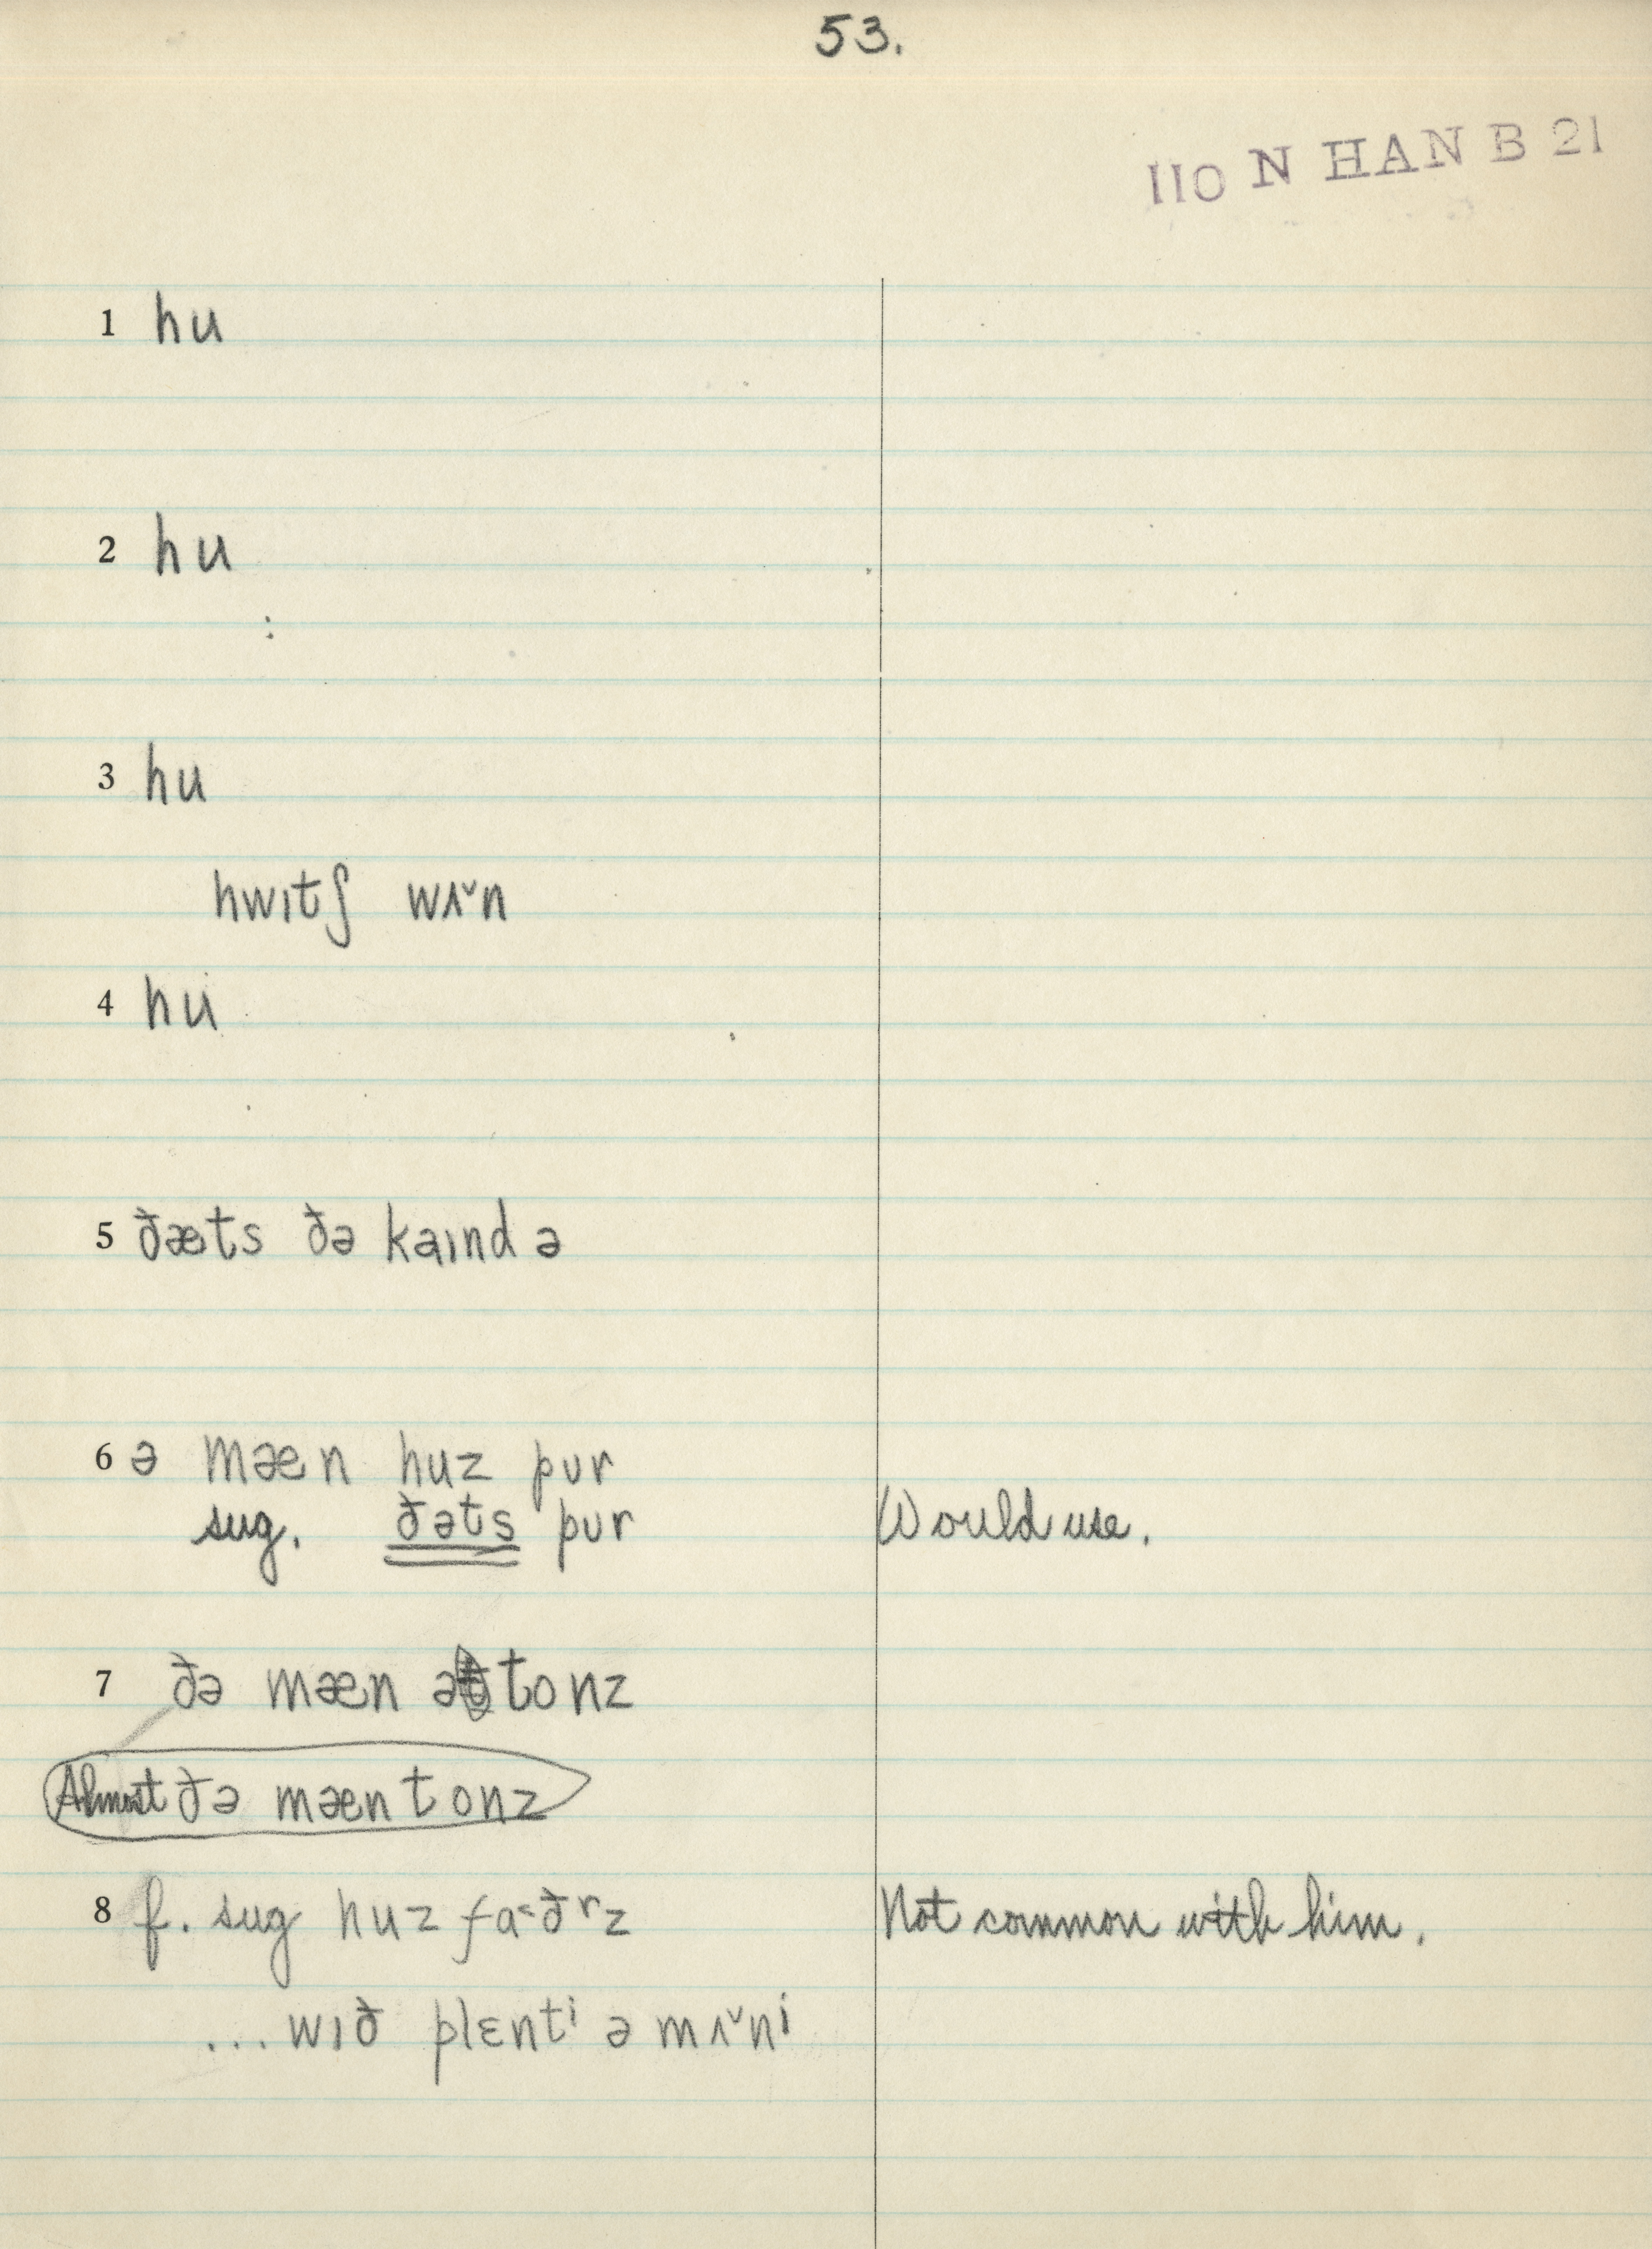 53.
110 N HAN B 21
1 hu
2 hu
3 hu
hwɪtʃ wʌ˅n
4 hu
5 ðæts ðə kaɪnd ə
6 ə mæn huz pʊr
sug. ðəts pʊr Would use.
7 ðə mæn ə tonz
Almost ðə mæn tonz
8 f. sug huz fa˂ðʳz Not common with him.
... wɪð plɛntⁱ ə mʌ˅nⁱ